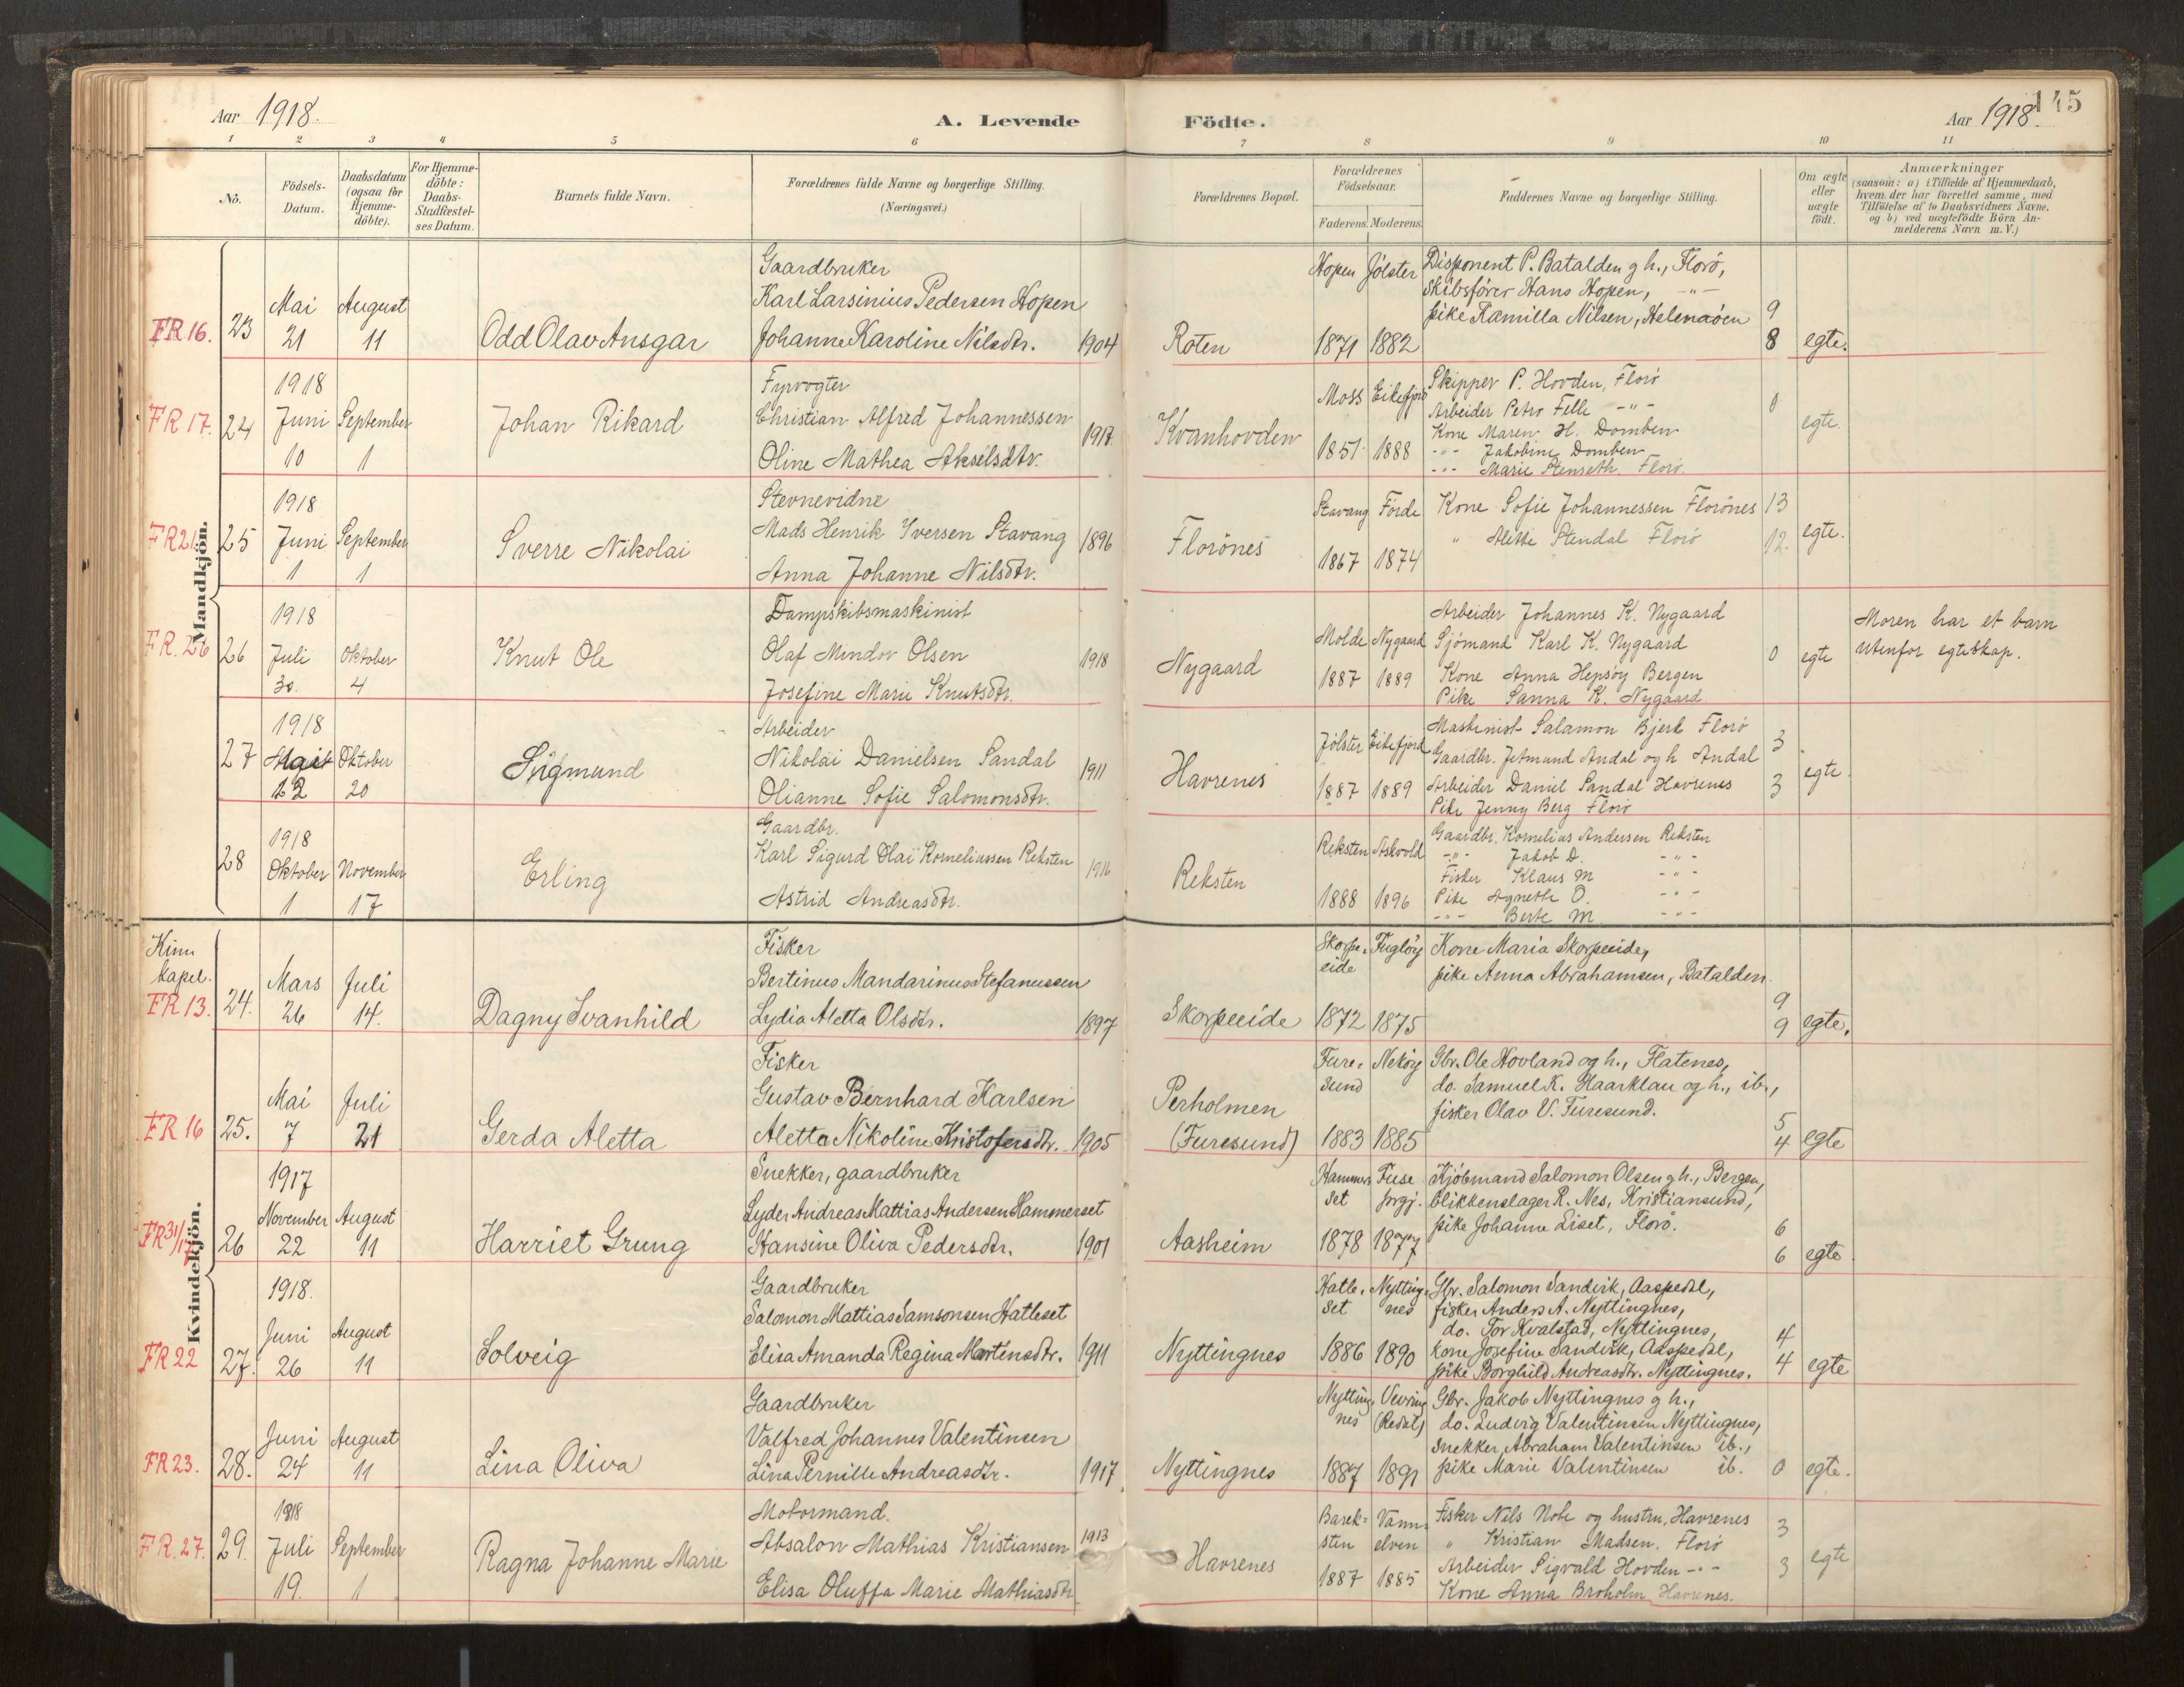 Aar 1918.
A. Levende
Födte.
Aar 1918.
145
1 2 3 4 5 6 7 8 9 10 11
No.
Födsels-
Datum.
Daabsdatum
(ogsaa for
Hjemme-
döbte).
For Hjemme-
döbte:
Daabs-
Stadfæstel-
ses Datum.
Barnets fulde Navn.
Forældrenes fulde Navne og borgerlige Stilling.
(Næringsvei.)
Forældrenes Bopæl.
Forældrenes
Födselsaar.
Faderens. Moderens.
Faddernes Navne og borgerlige Stilling.
Om ægte
eller
uægte
födt.
Anmærkninger
(saasom: a) i Tilfælde af Hjemmedaab,
hvem der har forrettet samme, med
Tilföielse af to Daabsvidners Navne.
og b) ved uægtefödte Börn An-
melderens Navn m. V.)
Mandkjön.
FR 16.
23
Mai
21
August
11
Odd Olav Ansgar
Gaardbruker
Karl Larsinius Pedersen Hopen
Johanne Karoline Nilsdtr.
1904
Roten
Hopen Jölster
1871 1882
Disponent P. Batalden g h., Florö,
Skibsförer Hans Hopen, -"-
pike Kamilla Nilsen, Helenaöen
9
8
egte.
FR 17.
24
1918
Juni
10
September
1
Johan Rikard
Fyrvogter
Christian Alfred Johannessen
Oline Mathea Akselsdtr.
1917
Kvanhovden
Moss Eikefjord
1851 1888
Skipper P. Hovden, Florö
Arbeider Petro Felle -"-
Kone Maren H. Domben
-"- Jakobine Domben
-"- Marie Stenseth Florö.
0
egte.
FR 21.
25
1918
Juni
1
September
1
Sverre Nikolai
Stevnevidne
Mads Henrik Iversen Stavang
Anna Johanne Nilsdtr.
1896
Florönes
Stavang Förde
1867 1874
Kone Sofie Johannessen Florönes
" Alette Stendal Florö
13
12.
egte.
FR. 26
26
1918
Juli
30.
Oktober
4
Knut Ole
Dampskibsmaskinist
Olaf Mindor Olsen
Josefine Marie Knutsdtr.
1918
Nygaard
Molde Nygaard
1887 1889
Arbeider Johannes K. Nygaard
Sjömand Karl K. Nygaard
Kone Anna Hepsöy Bergen
Pike Sanna K. Nygaard
0
egte
Moren har et barn
utenfor egteskap.
27
1918
12
Oktober
20
Sigmund
Arbeider
Nikolai Danielsen Sandal
Olianne Sofie Salomonsdtr.
1911
Havrenes
Jölster Eikefjord
1887 1889
Maskinist Salamon Bjerk Florö
Gaardbr. Jetmund Andal og h Andal
Arbeider Daniel Sandal Havrenes
Pike Jenny Berg Florö
3
3
egte.
28
1918
Oktober
1
November
17
Erling
Gaardbr.
Karl Sigurd Olai Korneliussen Reksten
Astrid Andreasdtr.
1916
Reksten
Reksten Askvold
1888 1896
Gaardbr. Kornelius Andersen Reksten
-"- Jakob D. -"-
Fisker Klaus M -"-
Pike Agnethe O. -"-
-"- Berte M -"-
Kvindekjön.
Kinn
kapel.
FR 13.
24.
Mars
26
Juli
14.
Dagny Svanhild
Fisker
Bertinus Mandarinus Stefanussen
Lydia Aletta Olsdtr.
1897
Skorpeeide
Skorpe-
eide
Fuglöy
1872 1875
Kone Maria Skorpeeide,
pike Anna Abrahamsen, Batalden.
9
9
egte.
FR 16
25.
Mai
7
Juli
21
Gerda Aletta
Fisker
Gustav Bernhard Karlsen
Aletta Nikoline Kristofersdtr.
1905
Perholmen
(Furesund)
Fure-
sund
Neköy
1883 1885
Gbr. Ole Hovland og h., Flatenes,
do. Samuel K. Haarklau og h., ib.,
fisker Olav V. Furesund.
5
4
egte
FR 31/17
26
1917
November
22
August
11
Harriet Grung
Snekker, gaardbruker
Lyder Andreas Mattias Andersen Hammerset
Hansine Oliva Pedersdtr.
1901
Aasheim
Hammer-
set
Fuse
prgj.
1878 1877
Kjöbmand Salomon Olsen g h., Bergen,
blikkenslager R. Nes, Kristiansund,
pike Johanne Liset, Florö.
6
6
egte
FR 22
27.
1918.
Juni
26
August
11
Solveig
Gaardbruker
Salomon Mattias Samsonsen Hatleset
Elisa Amanda Regina Mortensdtr.
1911
Nyttingnes
Hatle-
set
Nytting-
nes
1886 1890
Gbr. Salomon Sandvik, Aaspedal,
fisker Anders A. Nyttingnes,
do. Tor Kvalstad, Nyttingnes,
kone Josefine Sandvik, Aaspedal,
pike Borghild Andreasdtr. Nyttingnes.
4
4
egte
FR 23.
28.
Juni
24
August
11
Lina Oliva
Gaardbruker
Valfred Johannes Valentinsen
Lina Pernille Andreasdtr.
1917
Nyttingnes
Nytting-
nes
Vevring
(Redal)
1887 1891
Gbr. Jakob Nyttingnes g h.,
do. Ludvig Valentinsen Nyttingnes,
snekker Abraham Valentinsen ib.,
pike Marie Valentinsen ib.
0
egte.
FR. 27.
29.
1918
Juli
19.
September
1
Ragna Johanne Marie
Motormand.
Absalon Mathias Kristiansen
Elisa Oluffa Marie Mathiasdtr
1913
Havrenes
Barek-
sten
Vann-
elven
1887 1885
Fisker Nils Nobe og hustru, Havrenes
" Kristian Madsen. Florö
Arbeider Sigvald Hovden -"-
Kone Anna Broholm Havrenes.
3
3
egte